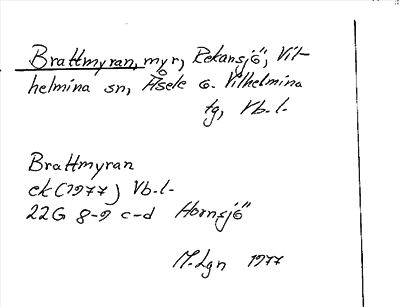 Brattmyran, myr, Rekansjö, Vil-
helmina sn, Åsele o. Vilhelmina
tg, Vb.l.
Brattmyran
ek (1977) Vb.l.
22G 8-9 c-d Hornsjö
M.Lgn 1977